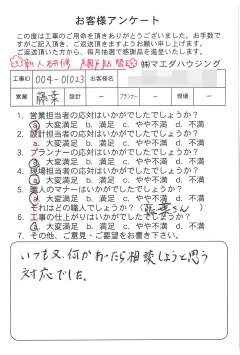 お客様アンケート
この度は工事のご用命を頂きありがとうございました。お手数で
すがご記入頂き、ご返送頂きますようお願い申し上げます。
ご返送頂いた方から、毎月抽選で感謝品を進呈いたします。
㈱マエダハウジング
工事ID 004-01023 お客様名
営業 藤葉 設計 ー プランナー ー 現場 ー
1. 営業担当者の応対はいかがでしたでしょうか?
a. 大変満足 b. 満足 c. やや不満 d. 不満
2. 設計担当者の応対はいかがでしたでしょうか?
a. 大変満足 b. 満足 c. やや不満 d. 不満
3. プランナーの応対はいかがでしたでしょうか?
a. 大変満足 b. 満足 c. やや不満 d. 不満
4. 現場担当者の応対はいかがでしたでしょうか?
a. 大変満足 b. 満足 c. やや不満 d. 不満
5. 職人のマナーはいかがでしたでしょうか?
a. 大変満足 b. 満足 c. やや不満 d. 不満
それはどの職人でしょうか?( さん)
6. 工事の仕上がりはいかがでしたでしょうか?
a. 大変満足 b. 満足 c. やや不満 d. 不満
7. その他、ご意見・ご要望をお書き下さい。
いつも又、何かあったら相談しようと思う
対応でした。